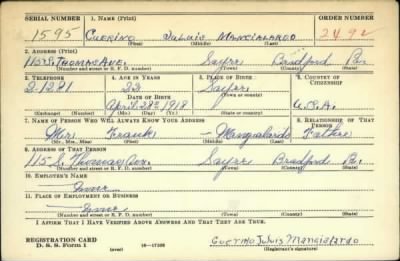 SERIAL NUMBER 1. NAME (Print) ORDER NUMBER
1595 Guerino Juluis Mangialardo 2492
(First) (Middle) (Last)
2. ADDRESS (Print)
115 S. Thomas Ave. Sayre Bradford Pa.
(Number and street or R. F. D. number) (Town) (County) (State)
3. TELEPHONE 4. AGE IN YEARS 5. PLACE OF BIRTH 6. COUNTRY OF CITIZENSHIP
2-1281 22 Sayre
DATE OF BIRTH (Town or county)
April 28th 1918 U.S.A.
(Exchange) (Number) (Mo.) (Day) (Yr.) (State or country)
7. NAME OF PERSON WHO WILL ALWAYS KNOW YOUR ADDRESS 8. RELATIONSHIP OF THAT PERSON
Mr. Frank — Mangialardo Father
(Mr., Mrs., Miss) (First) (Middle) (Last)
9. ADDRESS OF THAT PERSON
115 S. Thomas Ave. Sayre Bradford Pa.
(Number and street or R. F. D. number) (Town) (County) (State)
10. EMPLOYER'S NAME
None
11. PLACE OF EMPLOYMENT OR BUSINESS
None
(Number and street or R. F. D. number) (Town) (County) (State)
I AFFIRM THAT I HAVE VERIFIED ABOVE ANSWERS AND THAT THEY ARE TRUE.
REGISTRATION CARD
D. S. S. Form 1 (over) 16—17105 Guerino Juluis Mangialardo
(Registrant's signature)